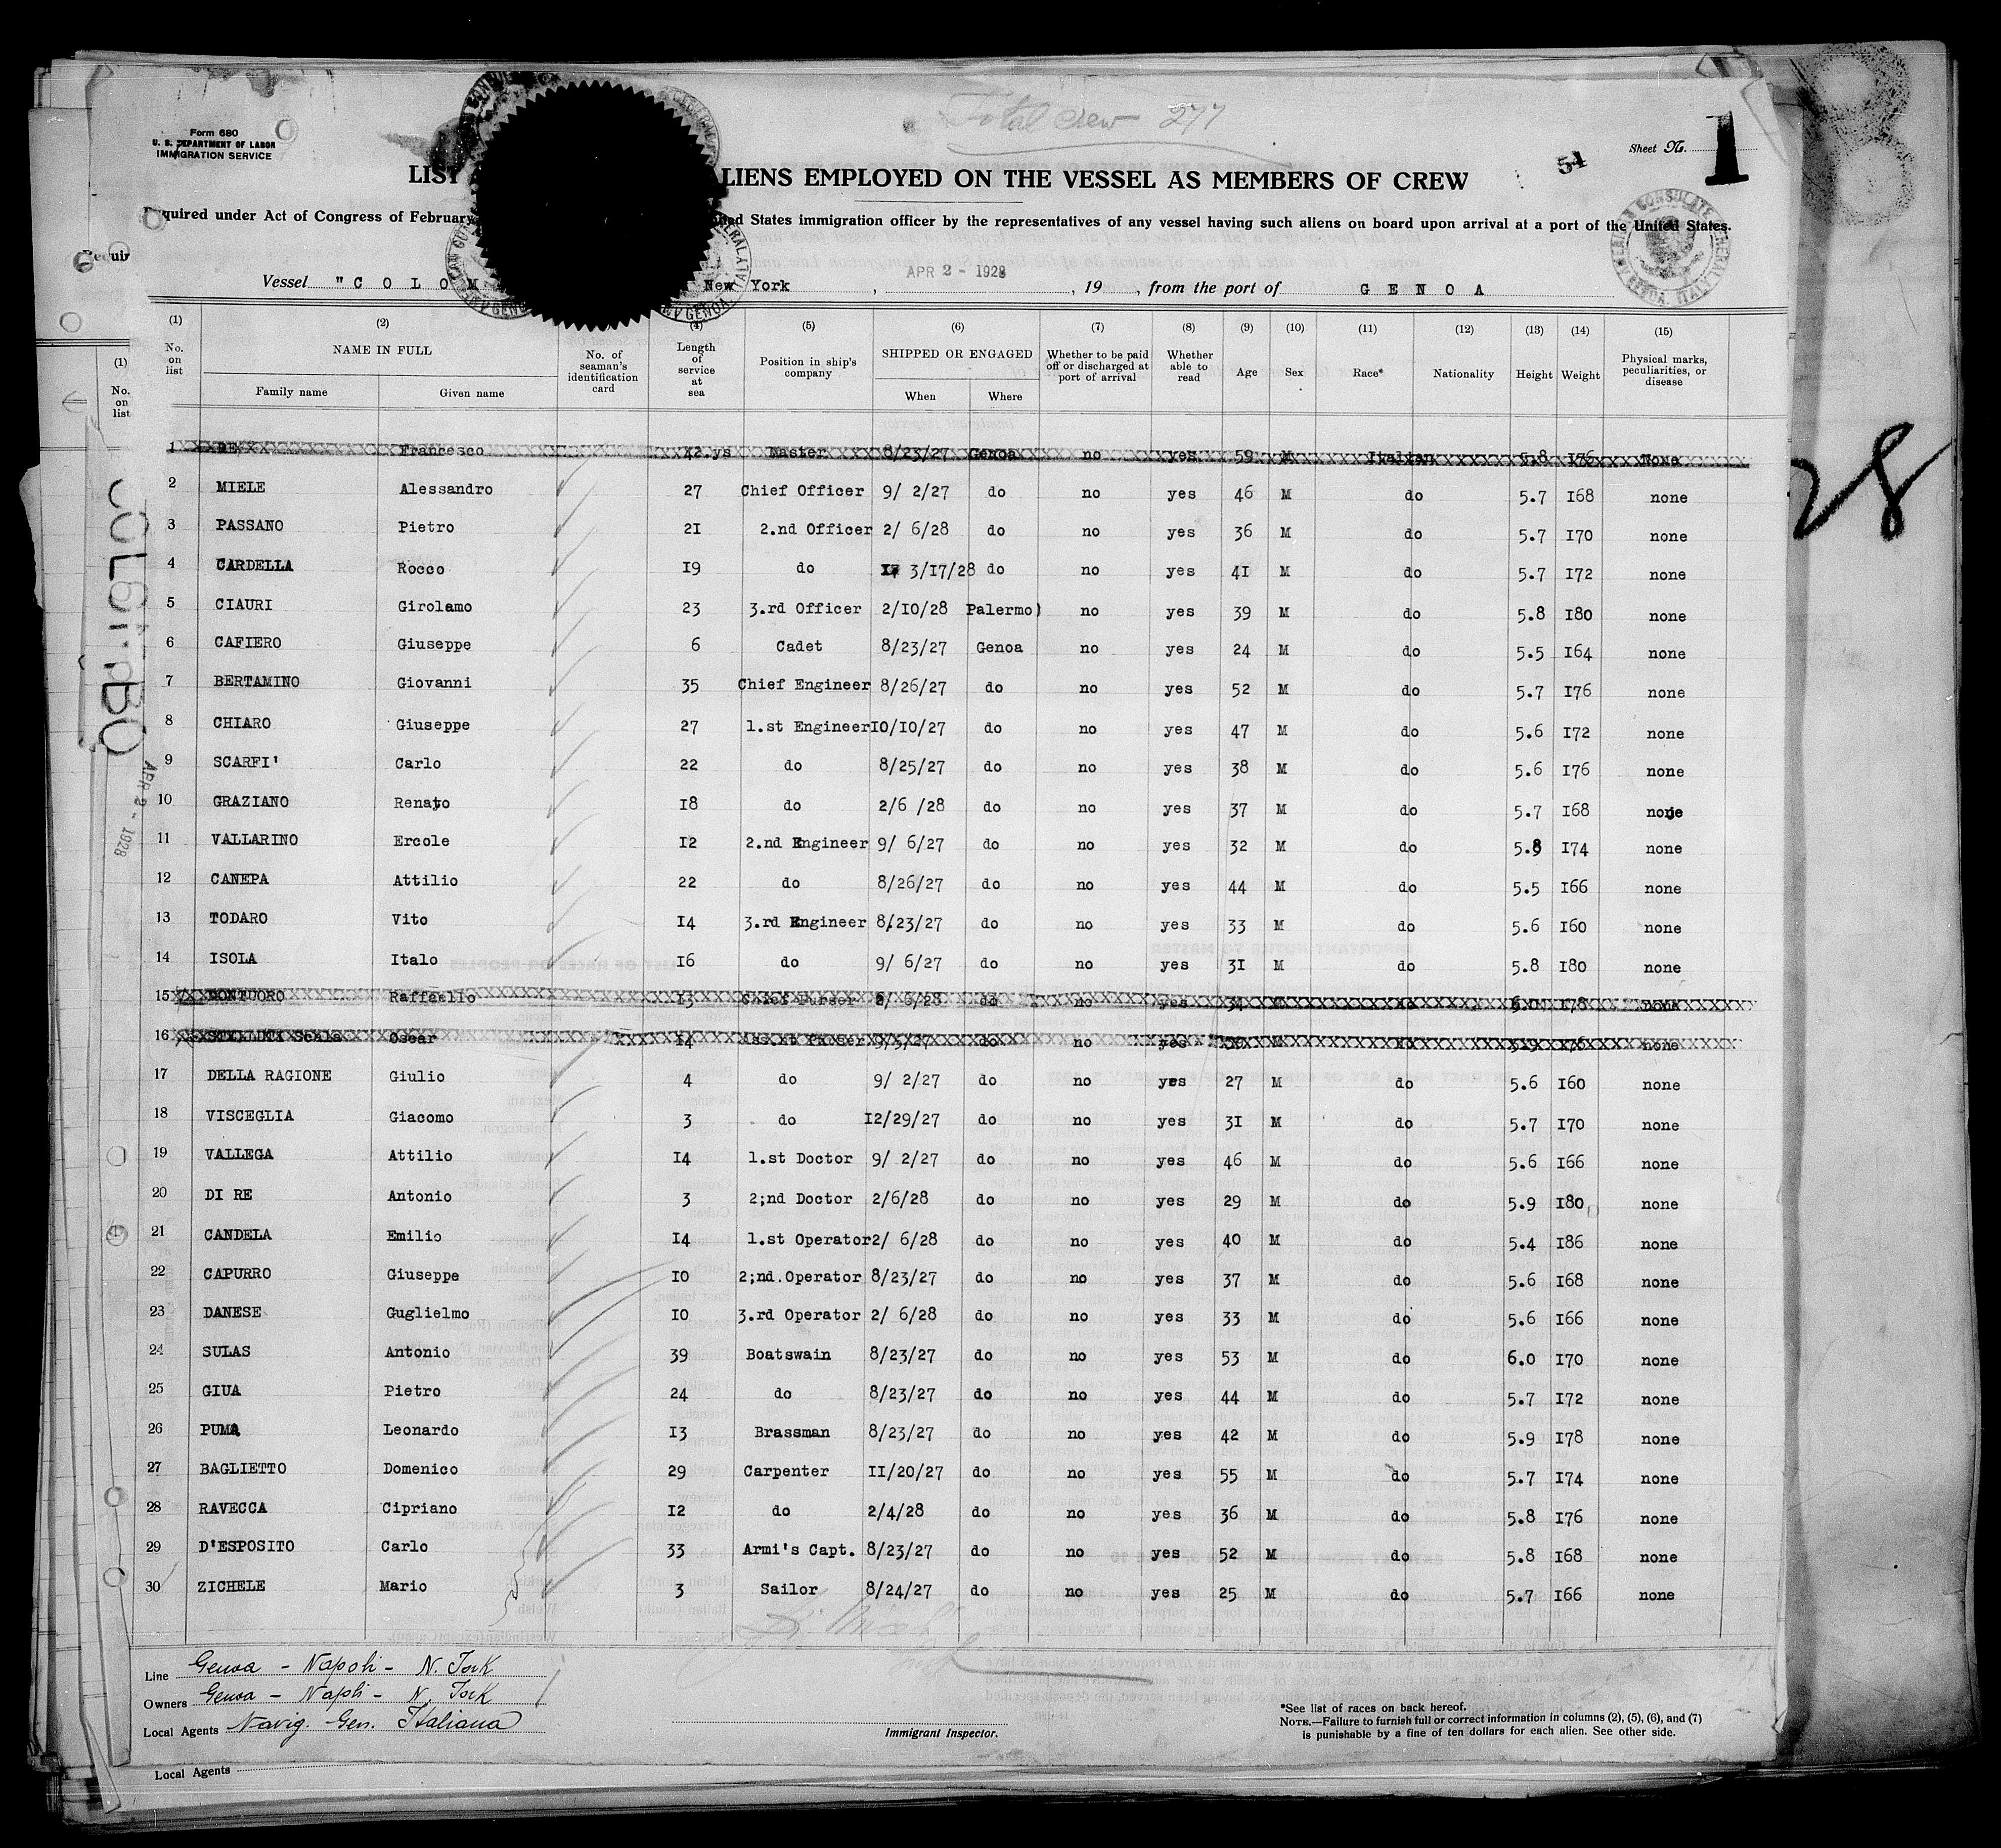 Total crew 277
Form 680
U. S. DEPARTMENT OF LABOR
IMMIGRATION SERVICE
54
Sheet No. 1
LIST LIENS EMPLOYED ON THE VESSEL AS MEMBERS OF CREW
quired under Act of Congress of February ed States immigration officer by the representatives of any vessel having such aliens on board upon arrival at a port of the United States.
Vessel "C O L O M New York , APR 2 - 1928 , 19 , from the port of G E N O A
(1) (2) (4) (5) (6) (7) (8) (9) (10) (11) (12) (13) (14) (15)
No. on list NAME IN FULL Family name Given name No. of seaman's identification card Length of service at sea Position in ship's company SHIPPED OR ENGAGED When Where Whether to be paid off or discharged at port of arrival Whether able to read Age Sex Race* Nationality Height Weight Physical marks, peculiarities, or disease
1 RE Francesco 42.ys Master 8/23/27 Genoa no yes 59 M Italian 5.8 176 None
2 MIELE Alessandro 27 Chief Officer 9/ 2/27 do no yes 46 M do 5.7 168 none
3 PASSANO Pietro 21 2.nd Officer 2/ 6/28 do no yes 36 M do 5.7 170 none
4 CARDELLA Rocco 19 do 3/17/28 do no yes 41 M do 5.7 172 none
5 CIAURI Girolamo 23 3.rd Officer 2/10/28 Palermo) no yes 39 M do 5.8 180 none
6 CAFIERO Giuseppe 6 Cadet 8/23/27 Genoa no yes 24 M do 5.5 164 none
7 BERTAMINO Giovanni 35 Chief Engineer 8/26/27 do no yes 52 M do 5.7 176 none
8 CHIARO Giuseppe 27 1.st Engineer 10/10/27 do no yes 47 M do 5.6 172 none
9 SCARFI' Carlo 22 do 8/25/27 do no yes 38 M do 5.6 176 none
10 GRAZIANO Renato 18 do 2/6 /28 do no yes 37 M do 5.7 168 none
11 VALLARINO Ercole 12 2.nd Engineer 9/ 6/27 do no yes 32 M do 5.8 174 none
12 CANEPA Attilio 22 do 8/26/27 do no yes 44 M do 5.5 166 none
13 TODARO Vito 14 3.rd Engineer 8/23/27 do no yes 33 M do 5.6 160 none
14 ISOLA Italo 16 do 9/ 6/27 do no yes 31 M do 5.8 180 none
15 MONTUORO Raffaello 13 Chief Purser 2/ 6/28 do no yes 34 M do 6.0 178 none
16 Scala Oscar 14 Ass.st Purser 9/3/27 do no yes M do 5.9 176 none
17 DELLA RAGIONE Giulio 4 do 9/ 2/27 do no yes 27 M do 5.6 160 none
18 VISCEGLIA Giacomo 3 do 12/29/27 do no yes 31 M do 5.7 170 none
19 VALLEGA Attilio 14 1.st Doctor 9/ 2/27 do no yes 46 M do 5.6 166 none
20 DI RE Antonio 3 2;nd Doctor 2/6/28 do no yes 29 M do 5.9 180 none
21 CANDELA Emilio 14 1.st Operator 2/ 6/28 do no yes 40 M do 5.4 186 none
22 CAPURRO Giuseppe 10 2;nd.Operator 8/23/27 do no yes 37 M do 5.6 168 none
23 DANESE Guglielmo 10 3.rd Operator 2/ 6/28 do no yes 33 M do 5.6 166 none
24 SULAS Antonio 39 Boatswain 8/23/27 do no yes 53 M do 6.0 170 none
25 GIUA Pietro 24 do 8/23/27 do no yes 44 M do 5.7 172 none
26 PUMA Leonardo 13 Brassman 8/23/27 do no yes 42 M do 5.9 178 none
27 BAGLIETTO Domenico 29 Carpenter 11/20/27 do no yes 55 M do 5.7 174 none
28 RAVECCA Cipriano 12 do 2/4/28 do no yes 36 M do 5.8 176 none
29 D'ESPOSITO Carlo 33 Armi's Capt. 8/23/27 do no yes 52 M do 5.8 168 none
30 ZICHELE Mario 3 Sailor 8/24/27 do no yes 25 M do 5.7 166 none
Line Genoa - Napoli - N. York
Owners Genoa - Napoli - N. York
Local Agents Navig. Gen. Italiana
Immigrant Inspector.
*See list of races on back hereof.
NOTE.—Failure to furnish full or correct information in columns (2), (5), (6), and (7)
is punishable by a fine of ten dollars for each alien. See other side.
Local Agents
COLOMBO
APR 2 - 1928
(1)
No. on list
28